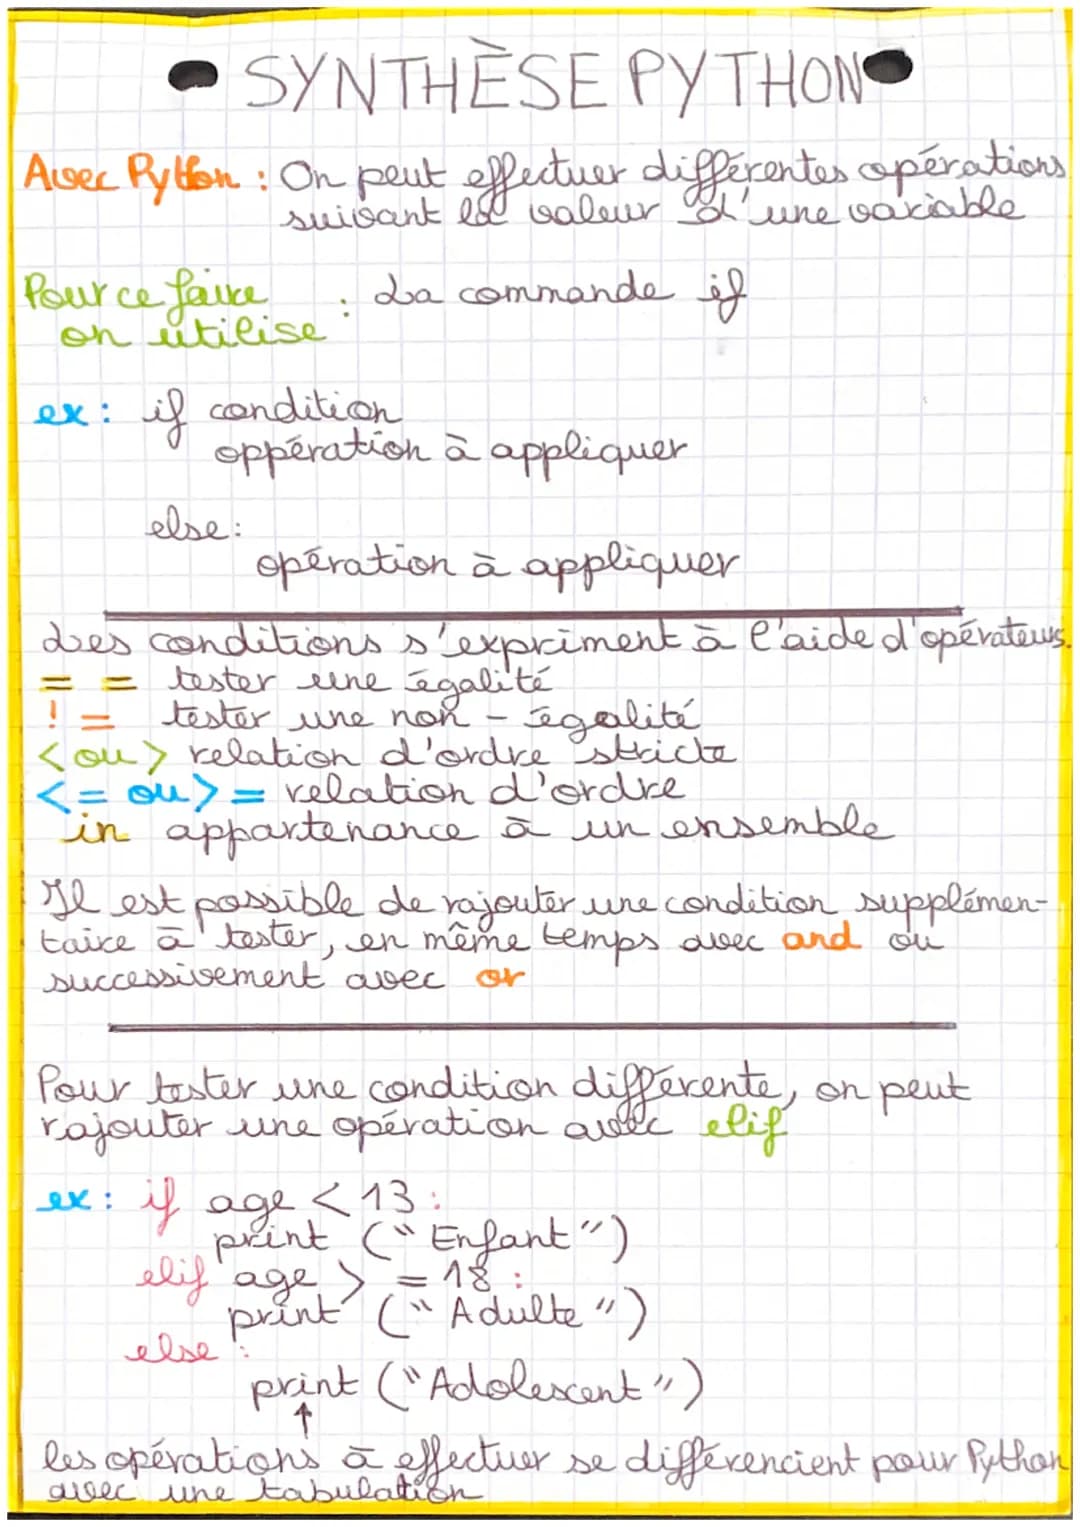 SYNTHÈSE PYTHON
Avec Python : On peut effectuer différentes opérations
suivant la valeur d'une variable
Pour ce faire
on utilise : La commande if
ex : if condition
oppération à appliquer
else :
opération à appliquer
Les conditions s'expriment à l'aide d'opérateurs.
= = tester une égalité
! = tester une non - égalité
< ou > relation d'ordre stricte
<= ou >= relation d'ordre
in appartenance à un ensemble
Il est possible de rajouter une condition supplémen-
taire à tester, en même temps avec and ou
successivement avec or
Pour tester une condition différente, on peut
rajouter une opération avec elif
ex : if age < 13 :
print ("Enfant")
elif age > = 18 :
print ("Adulte")
else :
print ("Adolescent")
↑
les opérations à effectuer se différencient pour Python
avec une tabulation